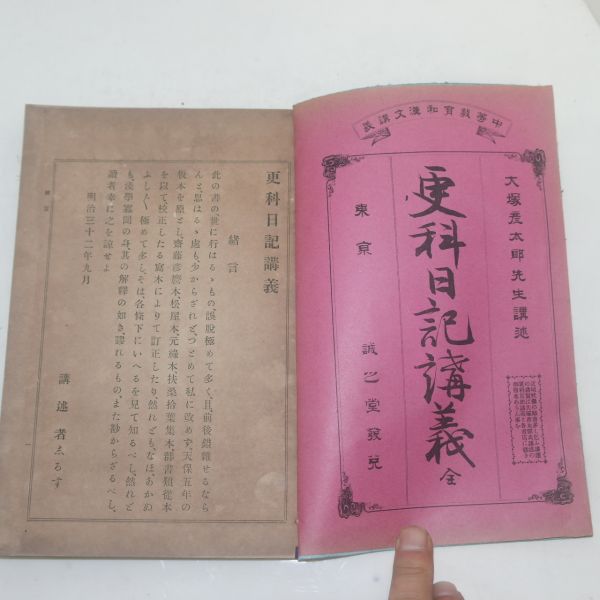 中等教育和漢文講義
大塚彦太郎先生講述
更科日記講義 全
東京 誠之堂發兌
更科日記講義
緒言
此の書の世に行はるゝもの誤脱極めて多く、且前後錯雜せるなら
んと思はるゝ處も少からざれど、つとめて私に改めず、天保五年の
板本を原とし、齋藤彦麿本、松屋本、元祿本、扶桑拾葉集本、群書類從本
を以て校正したる寫本によりて訂正したり、然れどもなほ、あかぬ
ふし〲極めて多し、そは、各條下にいへるを見て知るべし、然れど
も、淺學寡聞の身、其の解釋の如き、謬れるもの、また尠からざるべし、
讀者幸に之を諒せよ
明治三十二年九月
講述者しるす
緒言